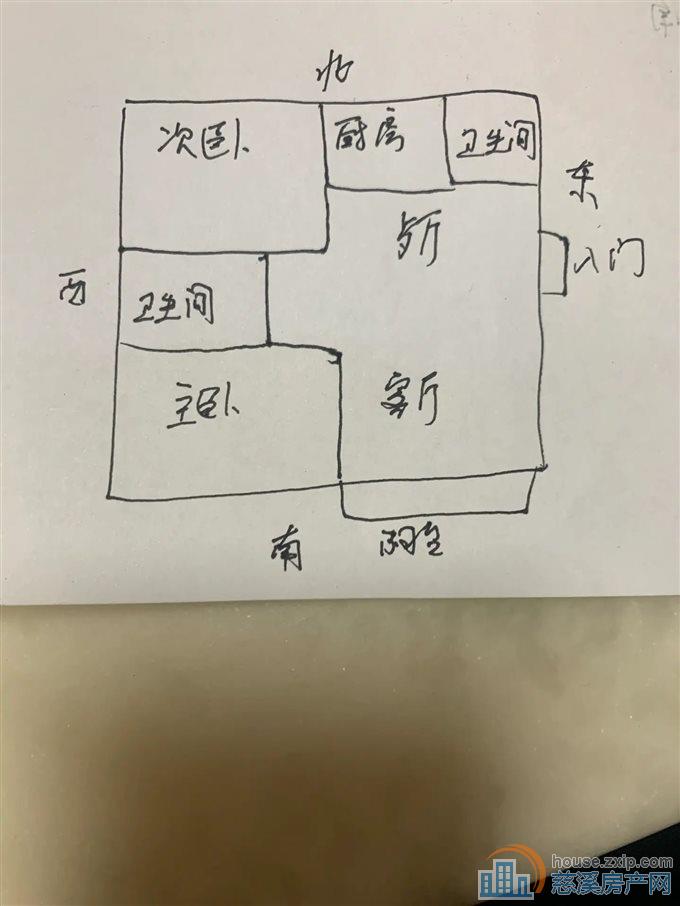 北
次卧
厨房
卫生间
东
餐厅
入门
西
卫生间
主卧
客厅
南
阳台
house.zxip.com
慈溪房产网